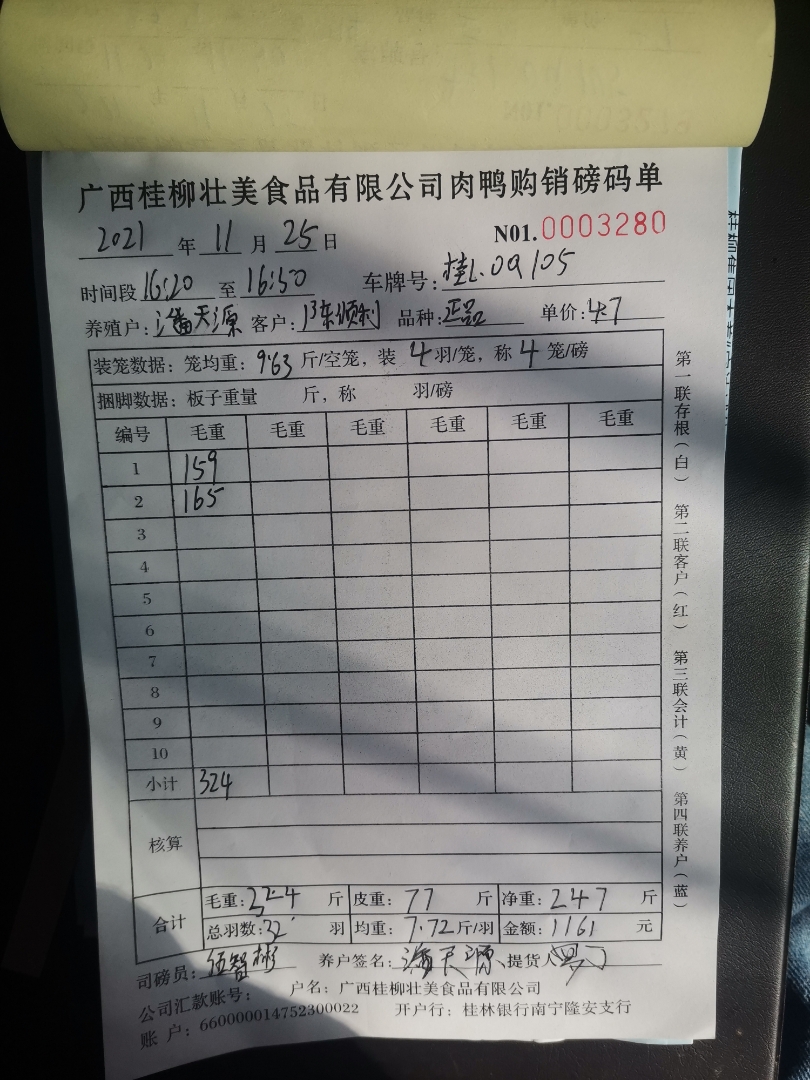 广西桂柳壮美食品有限公司肉鸭购销磅码单
2021年11月25日 N01.0003280
时间段16:20至16:50 车牌号:桂L.0Q105
养殖户:潘天源 客户:陈顺利 品种:正品 单价:4.7
装笼数据:笼均重:9.63斤/空笼,装4羽/笼,称4笼/磅
捆脚数据:板子重量 斤,称 羽/磅
编号 毛重 毛重 毛重 毛重 毛重 毛重
1 159
2 165
3
4
5
6
7
8
9
10
小计 324
核算
合计 毛重:324斤 皮重:77斤 净重:247斤
总羽数:32羽 均重:7.72斤/羽 金额:1161元
司磅员:伍智彬 养户签名:潘天源 提货人
公司汇款账号: 户名:广西桂柳壮美食品有限公司
账户:660000014752300022 开户行:桂林银行南宁隆安支行
第一联存根(白) 第二联客户(红) 第三联会计(黄) 第四联养户(蓝)